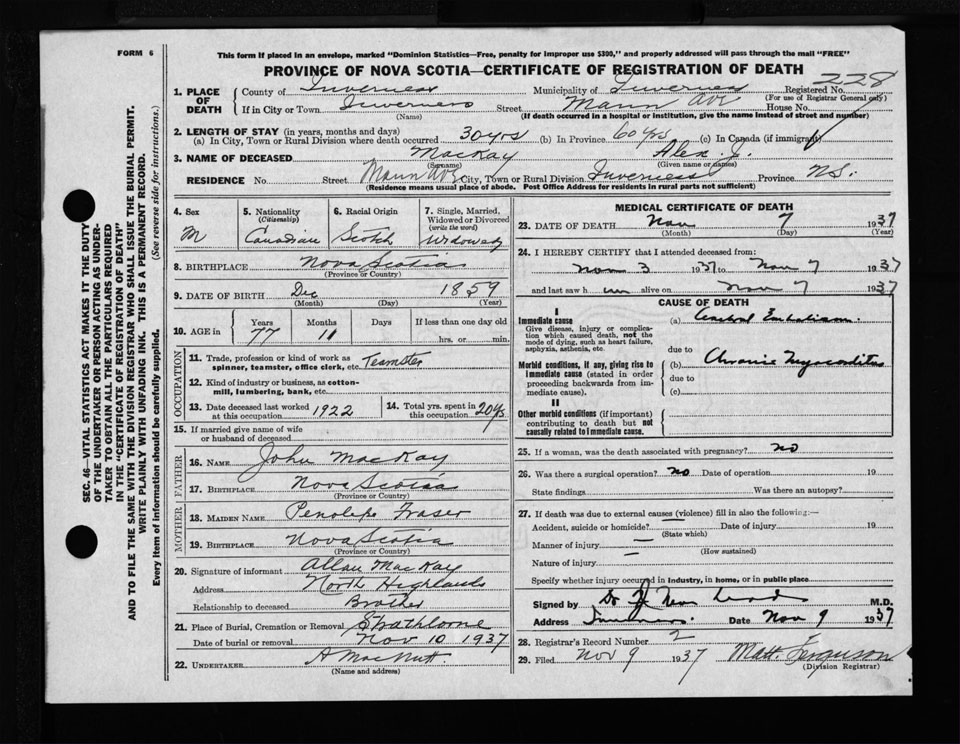 FORM 6
This form if placed in an envelope, marked "Dominion Statistics—Free, penalty for improper use $300," and properly addressed will pass through the mail "FREE"
PROVINCE OF NOVA SCOTIA—CERTIFICATE OF REGISTRATION OF DEATH
228
1. PLACE OF DEATH
County of Inverness Municipality of Inverness Registered No.
(For use of Registrar General only)
If in City or Town Inverness Street Mann Ave House No.
(Name) (If death occurred in a hospital or institution, give the name instead of street and number)
2. LENGTH OF STAY (in years, months and days)
(a) In City, Town or Rural Division where death occurred 30 yrs (b) In Province 60 yrs (c) In Canada (if immigrant)
3. NAME OF DECEASED MacKay Alex. J.
(Surname) (Given name or names)
RESIDENCE No. Street Mann Ave City, Town or Rural Division Inverness Province N.S.
(Residence means usual place of abode. Post Office Address for residents in rural parts not sufficient)
4. Sex M
5. Nationality (Citizenship) Canadian
6. Racial Origin Scotch
7. Single, Married, Widowed or Divorced (write the word) Widowed
8. BIRTHPLACE Nova Scotia
(Province or Country)
9. DATE OF BIRTH Dec 1859
(Month) (Day) (Year)
10. AGE in Years 77 Months 11 Days If less than one day old hrs. or min.
OCCUPATION
11. Trade, profession or kind of work as spinner, teamster, office clerk, etc. Teamster
12. Kind of industry or business, as cotton-mill, lumbering, bank, etc.
13. Date deceased last worked at this occupation 1922
14. Total yrs. spent in this occupation 20 yrs
15. If married give name of wife or husband of deceased
FATHER
16. NAME John MacKay
17. BIRTHPLACE Nova Scotia
(Province or Country)
MOTHER
18. MAIDEN NAME Penolepe Fraser
19. BIRTHPLACE Nova Scotia
(Province or Country)
20. Signature of informant Allan MacKay
Address North Highlands
Relationship to deceased Brother
21. Place of Burial, Cremation or Removal Strathlorne
Date of burial or removal Nov 10 1937
22. UNDERTAKER A MacNutt
(Name and address)
MEDICAL CERTIFICATE OF DEATH
23. DATE OF DEATH Nov 7 1937
(Month) (Day) (Year)
24. I HEREBY CERTIFY that I attended deceased from:
Nov 3 1937 to Nov 7 1937
and last saw him alive on Nov 7 1937
CAUSE OF DEATH
I
Immediate cause
Give disease, injury or complication which caused death, not the mode of dying, such as heart failure, asphyxia, asthenia, etc.
(a) Cerebral Embolism
due to
Morbid conditions, if any, giving rise to immediate cause (stated in order proceeding backwards from immediate cause).
(b) Chronic Myocarditis
due to
(c)
II
Other morbid conditions (if important) contributing to death but not causally related to immediate cause.
25. If a woman, was the death associated with pregnancy? no
26. Was there a surgical operation? no Date of operation 19
State findings Was there an autopsy?
27. If death was due to external causes (violence) fill in also the following:—
Accident, suicide or homicide? Date of injury 19
(State which)
Manner of injury —
(How sustained)
Nature of injury —
Specify whether injury occurred in industry, in home, or in public place
Signed by Dr M.D.
Address Inverness. Date Nov 9 1937
28. Registrar's Record Number 2
29. Filed Nov 9 1937 Matt. Ferguson
(Division Registrar)
SEC. 46—VITAL STATISTICS ACT MAKES IT THE DUTY OF THE UNDERTAKER OR PERSON ACTING AS UNDERTAKER TO OBTAIN ALL THE PARTICULARS REQUIRED IN THE "CERTIFICATE OF REGISTRATION OF DEATH" AND TO FILE THE SAME WITH THE DIVISION REGISTRAR WHO SHALL ISSUE THE BURIAL PERMIT.
WRITE PLAINLY WITH UNFADING INK. THIS IS A PERMANENT RECORD.
Every item of information should be carefully supplied. (See reverse side for instructions.)